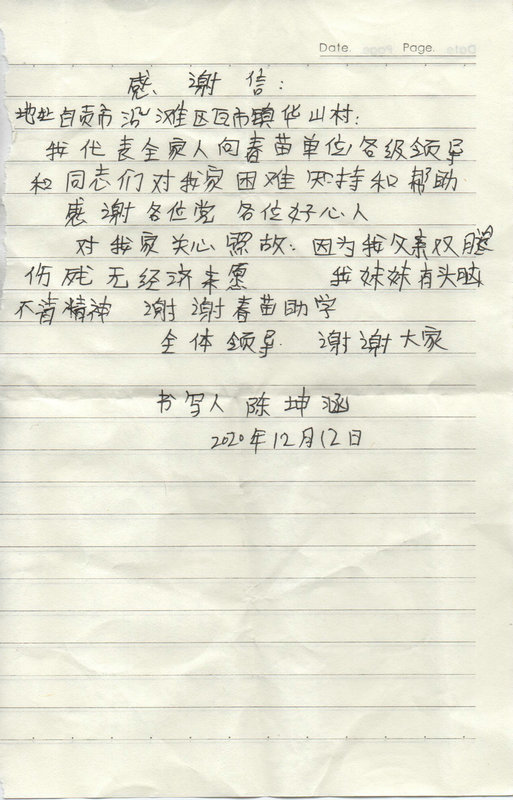 Date. Page.
感谢信:
地址自贡市沿滩区瓦市镇华山村:
我代表全家人向春苗单位各级领导
和同志们对我家困难支持和帮助
感谢各位党 各位好心人
对我家关心照故: 因为我父亲双腿
伤残无经济来愿 我妹妹有头脑
不清精神 谢谢春苗助学
全体领导. 谢谢大家
书写人 陈坤涵
2020年12月12日